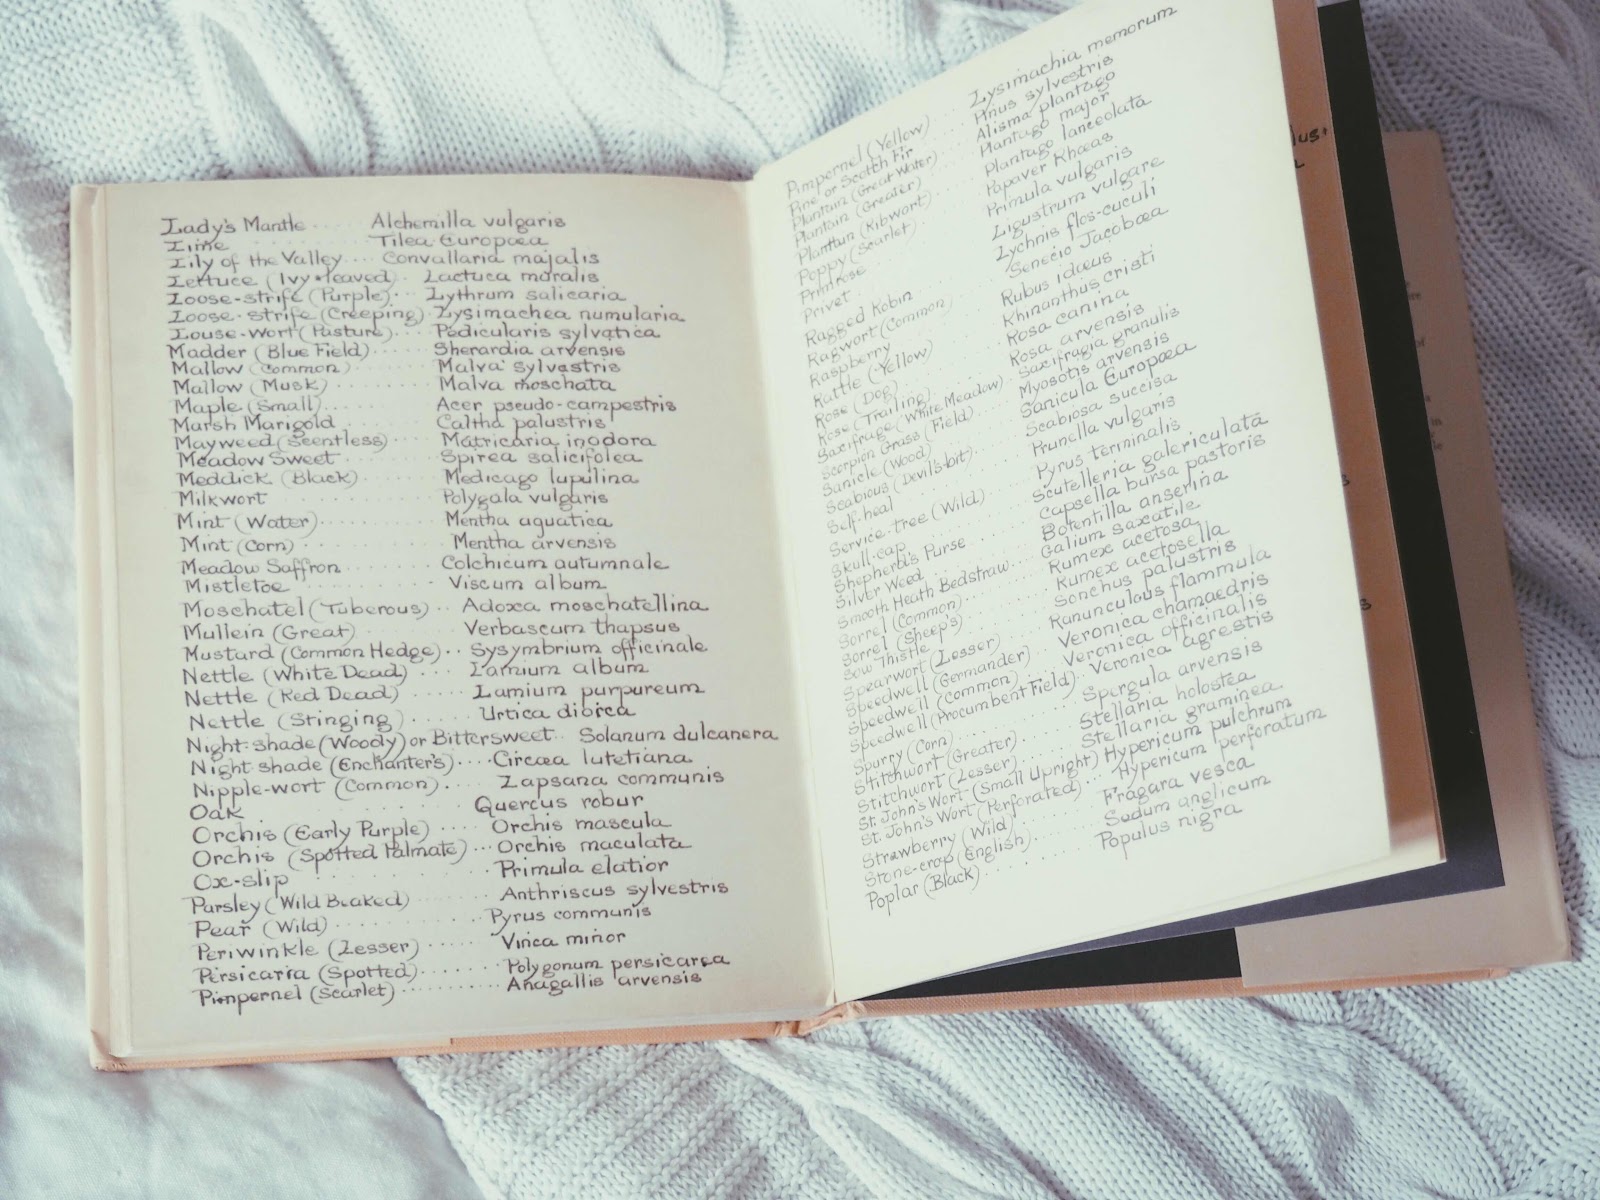 Lady's Mantle .... Alchemilla vulgaris
Lime ........ Tilea Europœa
Lily of the Valley .... Convallaria majalis
Lettuce (Ivy-leaved) .. Lactuca muralis
Loose-strife (Purple) ... Lythrum salicaria
Loose-strife (Creeping) . Lysimachea numularia
Louse-wort (Pasture) .... Pedicularis sylvatica
Madder (Blue Field) ...... Sherardia arvensis
Mallow (Common) ........ Malva sylvestris
Mallow (Musk) ........ Malva moschata
Maple (Small) ........ Acer pseudo-campestris
Marsh Marigold ........ Caltha palustris
Mayweed (Scentless) .... Matricaria inodora
Meadow Sweet ........ Spirea salicifolea
Meddick (Black) ........ Medicago lupulina
Milkwort ........ Polygala vulgaris
Mint (Water) ........ Mentha aquatica
Mint (Corn) ........ Mentha arvensis
Meadow Saffron ........ Colchicum autumnale
Mistletoe ........ Viscum album
Moschatel (Tuberous) .. Adoxa moschatellina
Mullein (Great) ........ Verbascum thapsus
Mustard (Common Hedge) .. Sysymbrium officinale
Nettle (White Dead) ..... Lamium album
Nettle (Red Dead) ...... Lamium purpureum
Nettle (Stinging) ...... Urtica diorca
Night-shade (Woody) or Bittersweet .. Solanum dulcanera
Night shade (Enchanter's) .... Circœa lutetiana
Nipple-wort (Common) .... Lapsana communis
Oak ........ Quercus robur
Orchis (Early Purple) .... Orchis mascula
Orchis (Spotted Palmate) ... Orchis maculata
Ox-slip ........ Primula elatior
Parsley (Wild Beaked) ...... Anthriscus sylvestris
Pear (Wild) ........ Pyrus communis
Periwinkle (Lesser) ..... Vinca minor
Persicaria (Spotted) ....... Polygonum persicarea
Pimpernel (Scarlet) ......... Anagallis arvensis
Pimpernel (Yellow) .... Lysimachia memorum
Pine or Scotch Fir .... Pinus sylvestris
Plantain (Great Water) .... Alisma plantago
Plantain (Greater) .... Plantago major
Plantain (Ribwort) .... Plantago lanceolata
Poppy (Scarlet) .... Papaver Rhœas
Primrose .... Primula vulgaris
Privet .... Ligustrum vulgare
Ragged Robin .... Lychnis flos-cuculi
Ragwort (Common) .... Senecio Jacobœa
Raspberry .... Rubus idœus
Rattle (Yellow) .... Rhinanthus cristi
Rose (Dog) .... Rosa canina
Rose (Trailing) .... Rosa arvensis
Saxifrage (White Meadow) .... Saxifragia granulis
Scorpion Grass (Field) .... Myosotis arvensis
Sanicle (Wood) .... Sanicula Europœa
Scabious (Devil's-bit) .... Scabiosa succisa
Self-heal .... Prunella vulgaris
Service-tree (Wild) .... Pyrus terminalis
Skull-cap .... Scutelleria galericulata
Shepherd's Purse .... Capsella bursa pastoris
Silver Weed .... Botentilla anserina
Smooth Heath Bedstraw .... Galium saxatile
Sorrel (Common) .... Rumex acetosa
Sorrel (Sheep's) .... Rumex acetosella
Sow Thistle .... Sonchus palustris
Spearwort (Lesser) .... Ranunculous flammula
Speedwell (Germander) .... Veronica chamaedris
Speedwell (Common) .... Veronica officinalis
Speedwell (Procumbent Field) .. Veronica agrestis
Spurry (Corn) .... Spergula arvensis
Stitchwort (Greater) .... Stellaria holostea
Stitchwort (Lesser) .... Stellaria graminea
St. John's Wort (Small Upright) Hypericum pulchrum
St. John's Wort (Perforated) .... Hypericum perforatum
Strawberry (Wild) .... Fragara vesca
Stone-crop (English) .... Sedum anglicum
Poplar (Black) .... Populus nigra